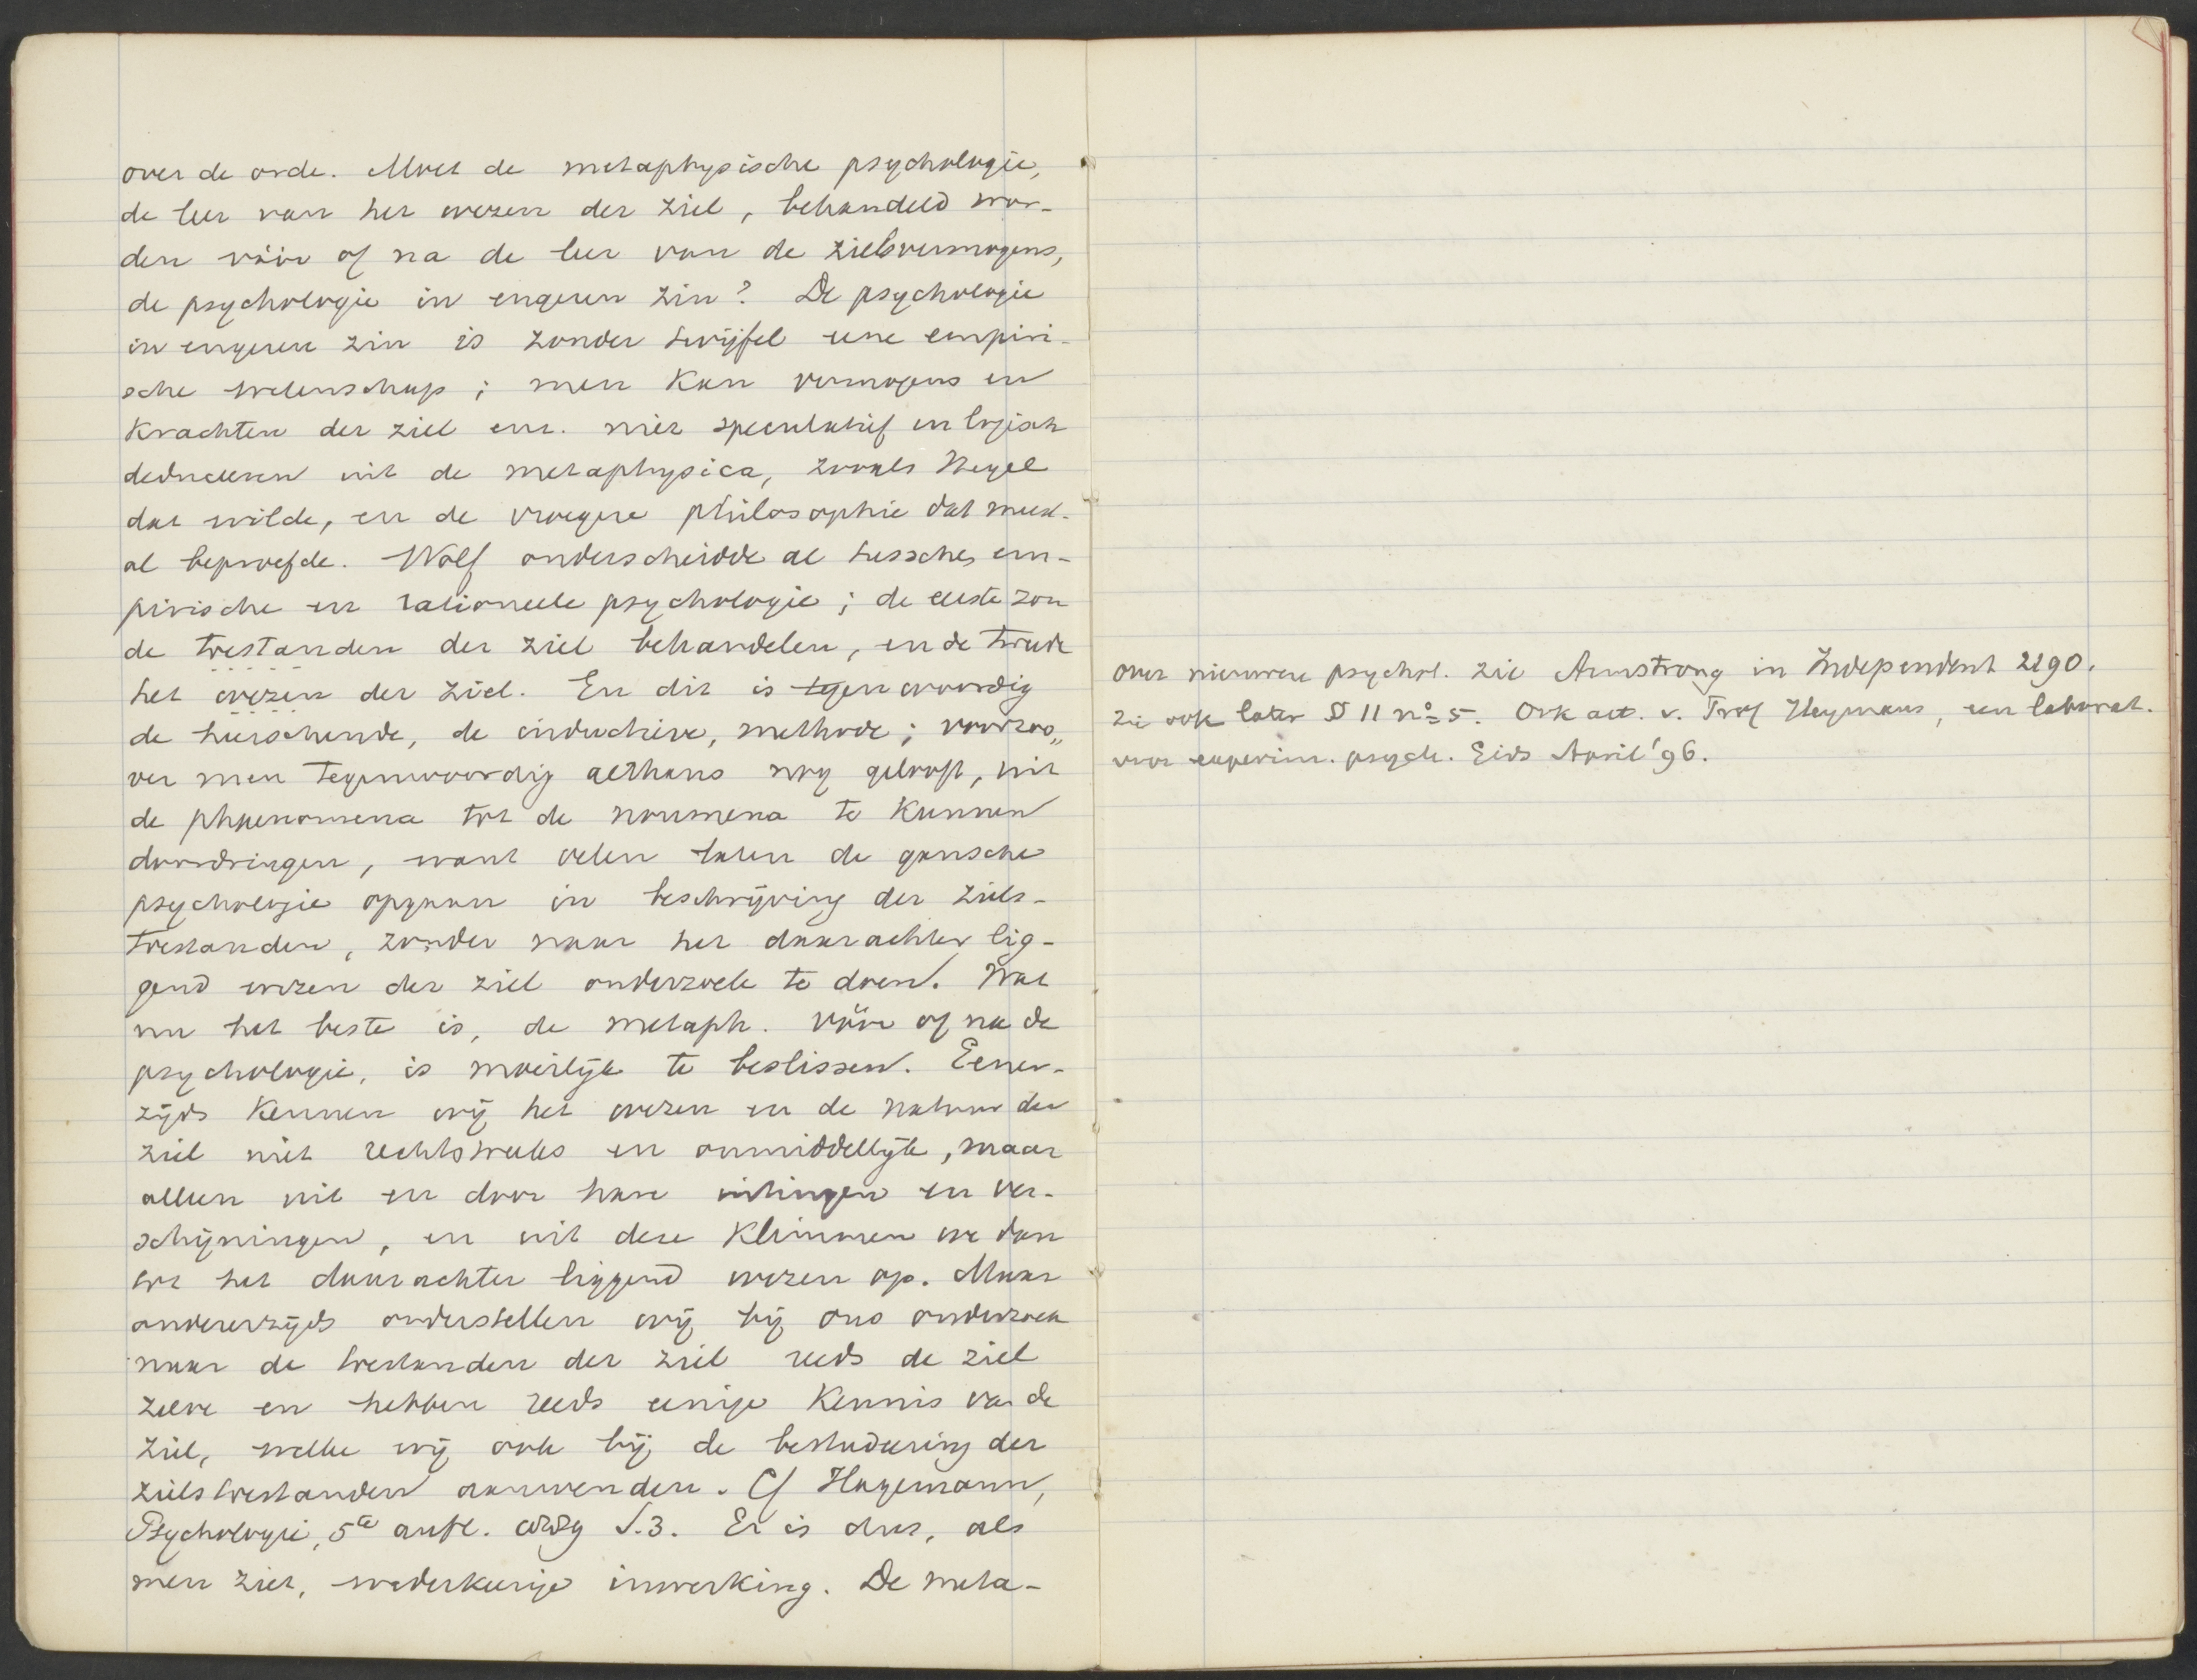 over de orde. Moet de metaphysische psychologie,
de leer van het wezen der ziel, behandeld wor-
den vóór of na de leer van de zielsvermogens,
de psychologie in engeren zin? De psychologie
in engeren zin is zonder twijfel eene empiri-
sche wetenschap; men kan vermogens en
krachten der ziel enz. niet speculatief en logisch
deduceeren uit de metaphysica, zooals Hegel
dat wilde, en de vroegere philosophie dat meest-
al beproefde. Wolf onderscheidde al tusschen em-
pirische en rationeele psychologie; de eerste zou
de toestanden der ziel behandelen, en de tweede
het wezen der ziel. En dit is tegenwoordig
de heerschende, de inductieve, methode; voorzoo„
ver men tegenwoordig althans nog gelooft, uit
de phaenomena tot de noumena te kunnen
doordringen, want velen laten de gansche
psychologie opgaan in beschrijving der ziels-
toestanden, zonder naar het daarachter lig-
gend wezen der ziel onderzoek te doen. Wat
nu het beste is, de metaph. vóór of na de
psychologie, is moeilijk te beslissen. Eener-
zijds kennen wij het wezen en de natuur der
ziel niet rechtstreeks en onmiddellijk, maar
alleen uit en door hare uitingen en ver-
schijningen, en uit deze klimmen we dan
tot het daarachter liggend wezen op. Maar
andererzijds onderstellen wij bij ons onderzoek
naar de toestanden der ziel reeds de ziel
zelve en hebben reeds eenige kennis van de
ziel, welke wij ook bij de bestudeering der
zielstoestanden aanwenden. Cf Hagemann,
Psychologie, 5te aufl. S. 3. Er is dus, als
men ziet, wederkeerige inwerking. De meta-
over nieuwere psychol. zie Armstrong in Independent 2190.
Zie ook later § 11 no 5. Ook art. v. Prof Heymans, een laborat.
voor experim. psych. Gids April '96.